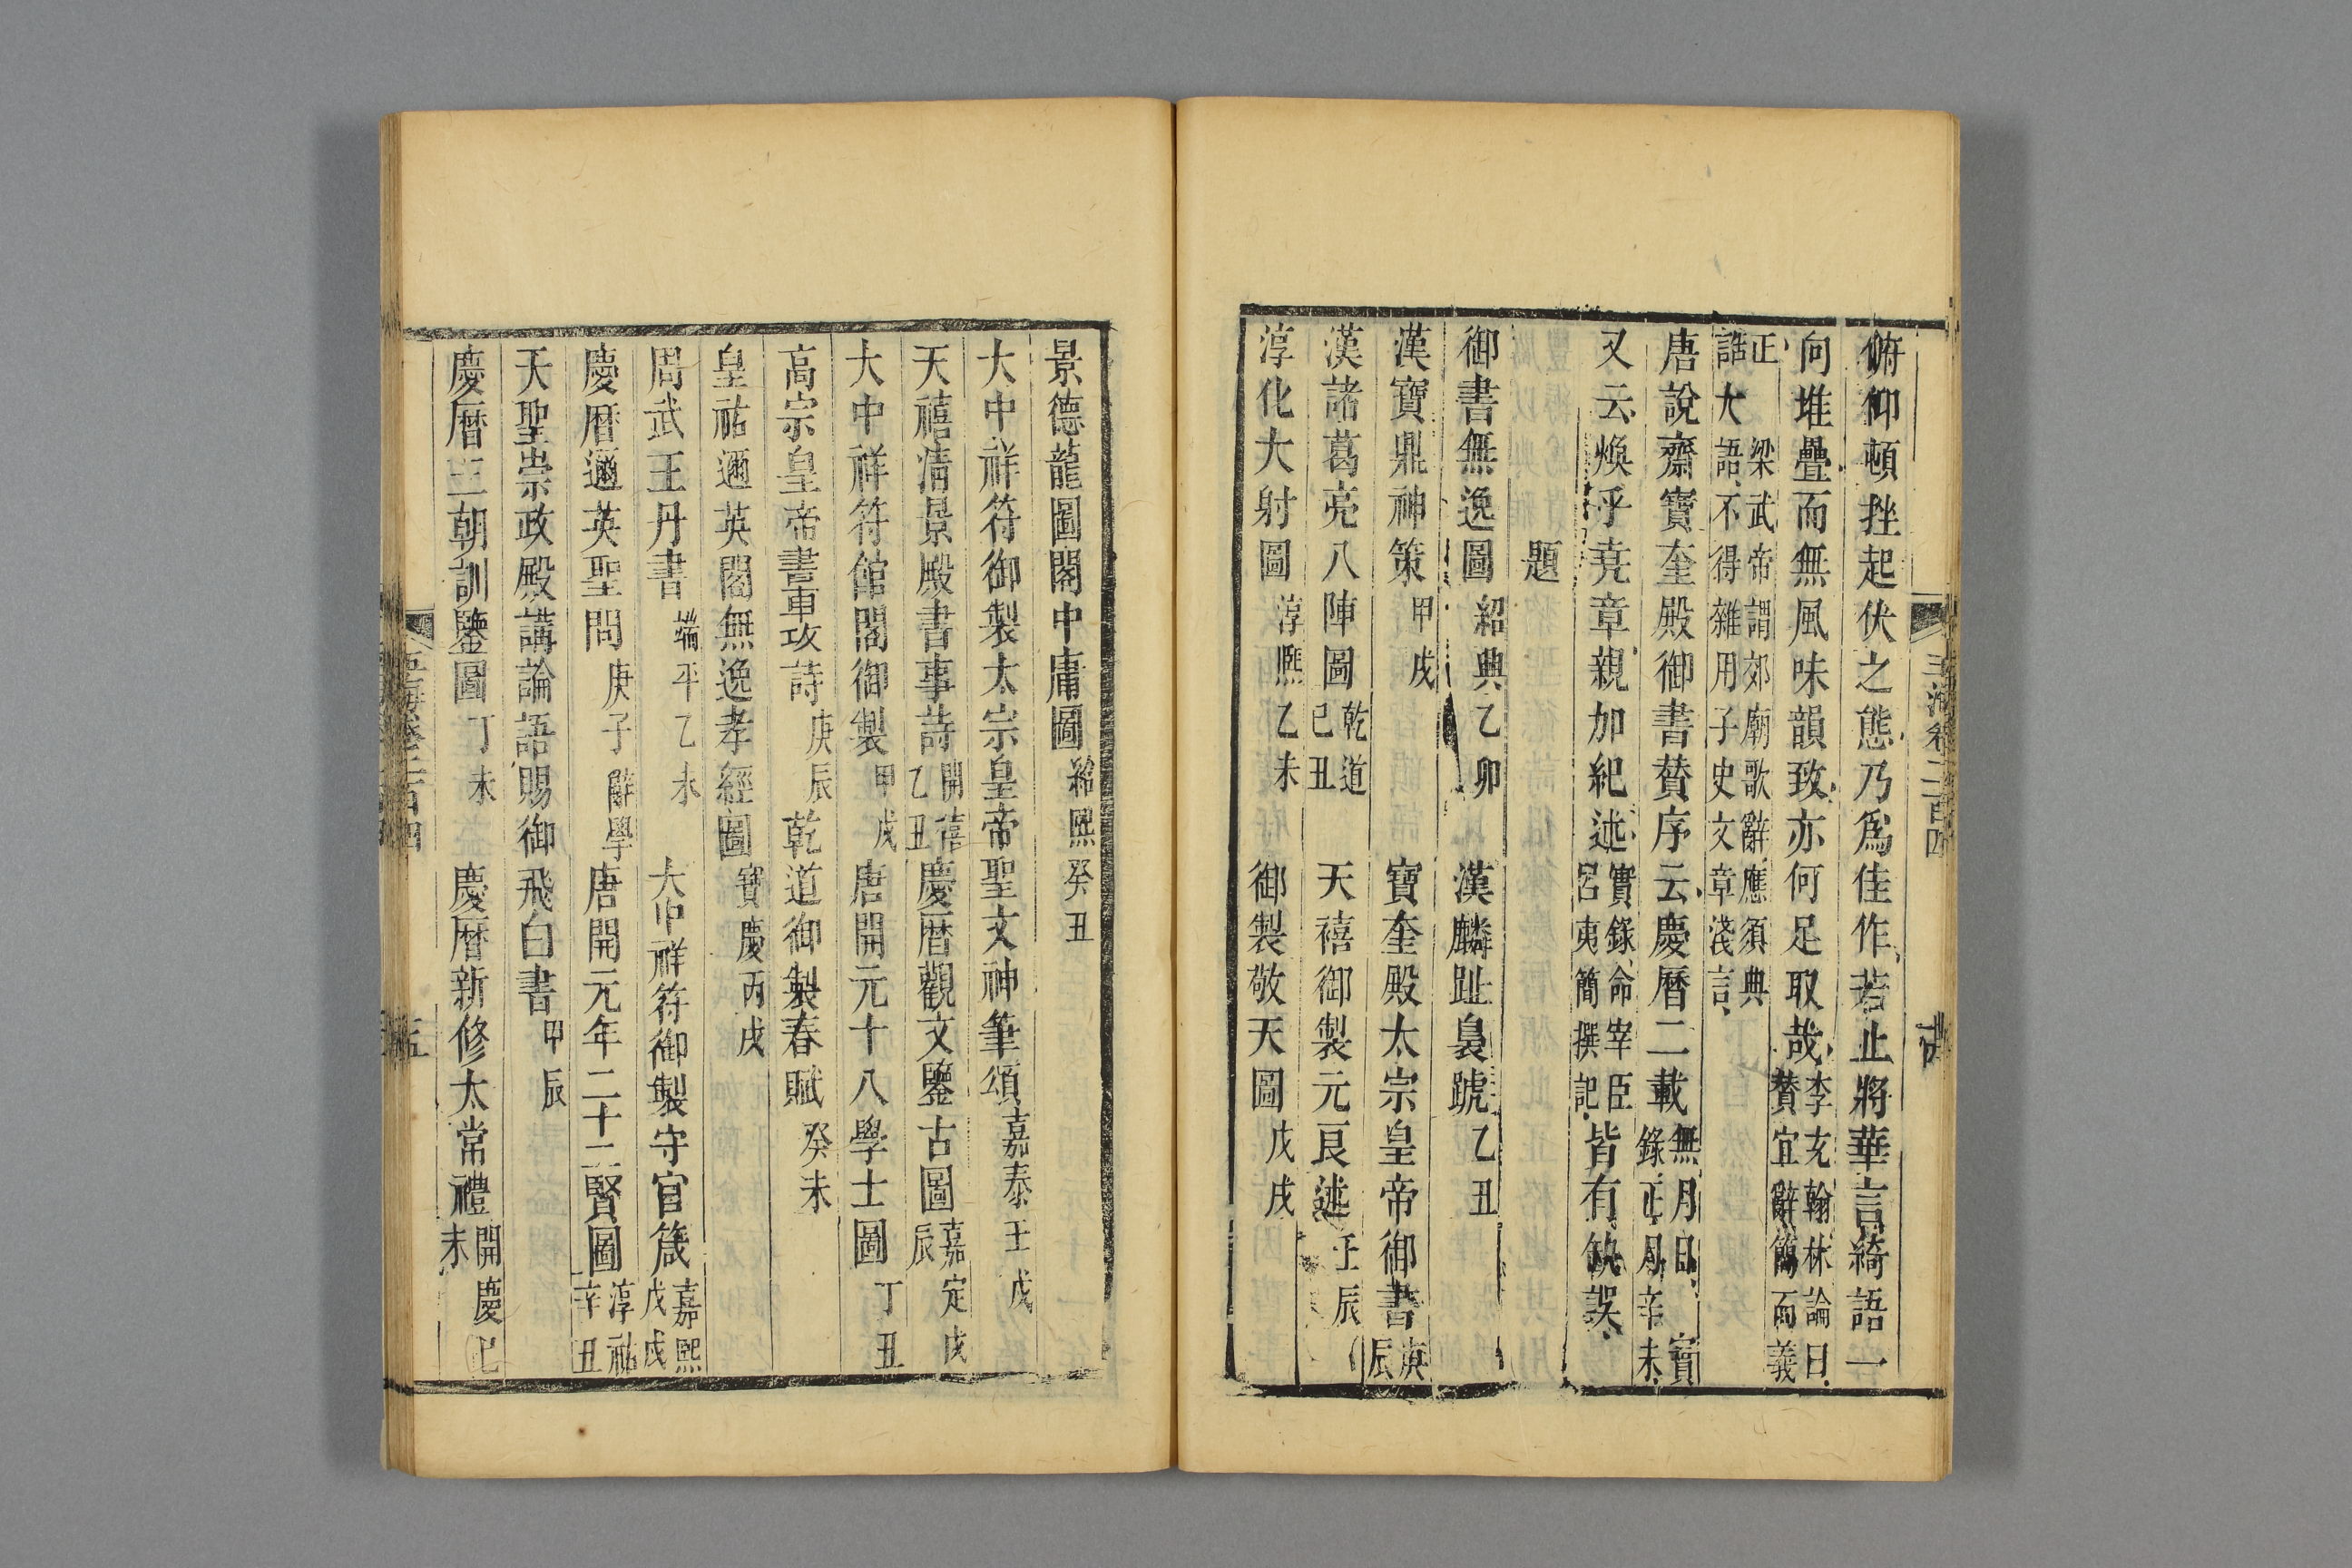 俯仰頓挫起伏之態乃為佳作若止將華言綺語一
向堆疊而無風味韻致亦何足取哉李充翰林論曰賛宜辭簡而義
正大梁武帝謂郊廟歌辭應須典誥大語不得雜用子史文章淺言
唐說齋寶奎殿御書賛序云慶曆二載無月日實錄正月辛未
又云煥乎堯章親加紀述實錄命宰臣呂夷簡撰記皆有缺誤
題
御書無逸圖紹興乙卯 漢麟趾褭蹏乙丑
漢寶鼎神策甲戌 寶奎殿太宗皇帝御書庚辰
漢諸葛亮八陣圖乾道己丑 天禧御製元良述壬辰
淳化大射圖淳熙乙未 御製敬天圖戊戌
玉海卷二百四
景德龍圖閣中庸圖紹熙癸丑
大中祥符御製太宗皇帝聖文神筆頌嘉泰壬戌
天禧清景殿書事詩開禧乙丑 慶曆觀文鑒古圖嘉定戊辰
大中祥符館閣御製甲戌 唐開元十八學士圖丁丑
高宗皇帝書車攻詩庚辰 乾道御製春賦癸未
皇祐邇英閣無逸孝經圖寶慶丙戌
周武王丹書端平乙未 大中祥符御製守官箴嘉熙戊戌
慶曆邇英聖問庚子辭學 唐開元年二十二賢圖淳祐辛丑
天聖崇政殿講論語賜御飛白書甲辰
慶曆三朝訓鑒圖丁未 慶曆新修太常禮開慶己未
玉海卷二百四